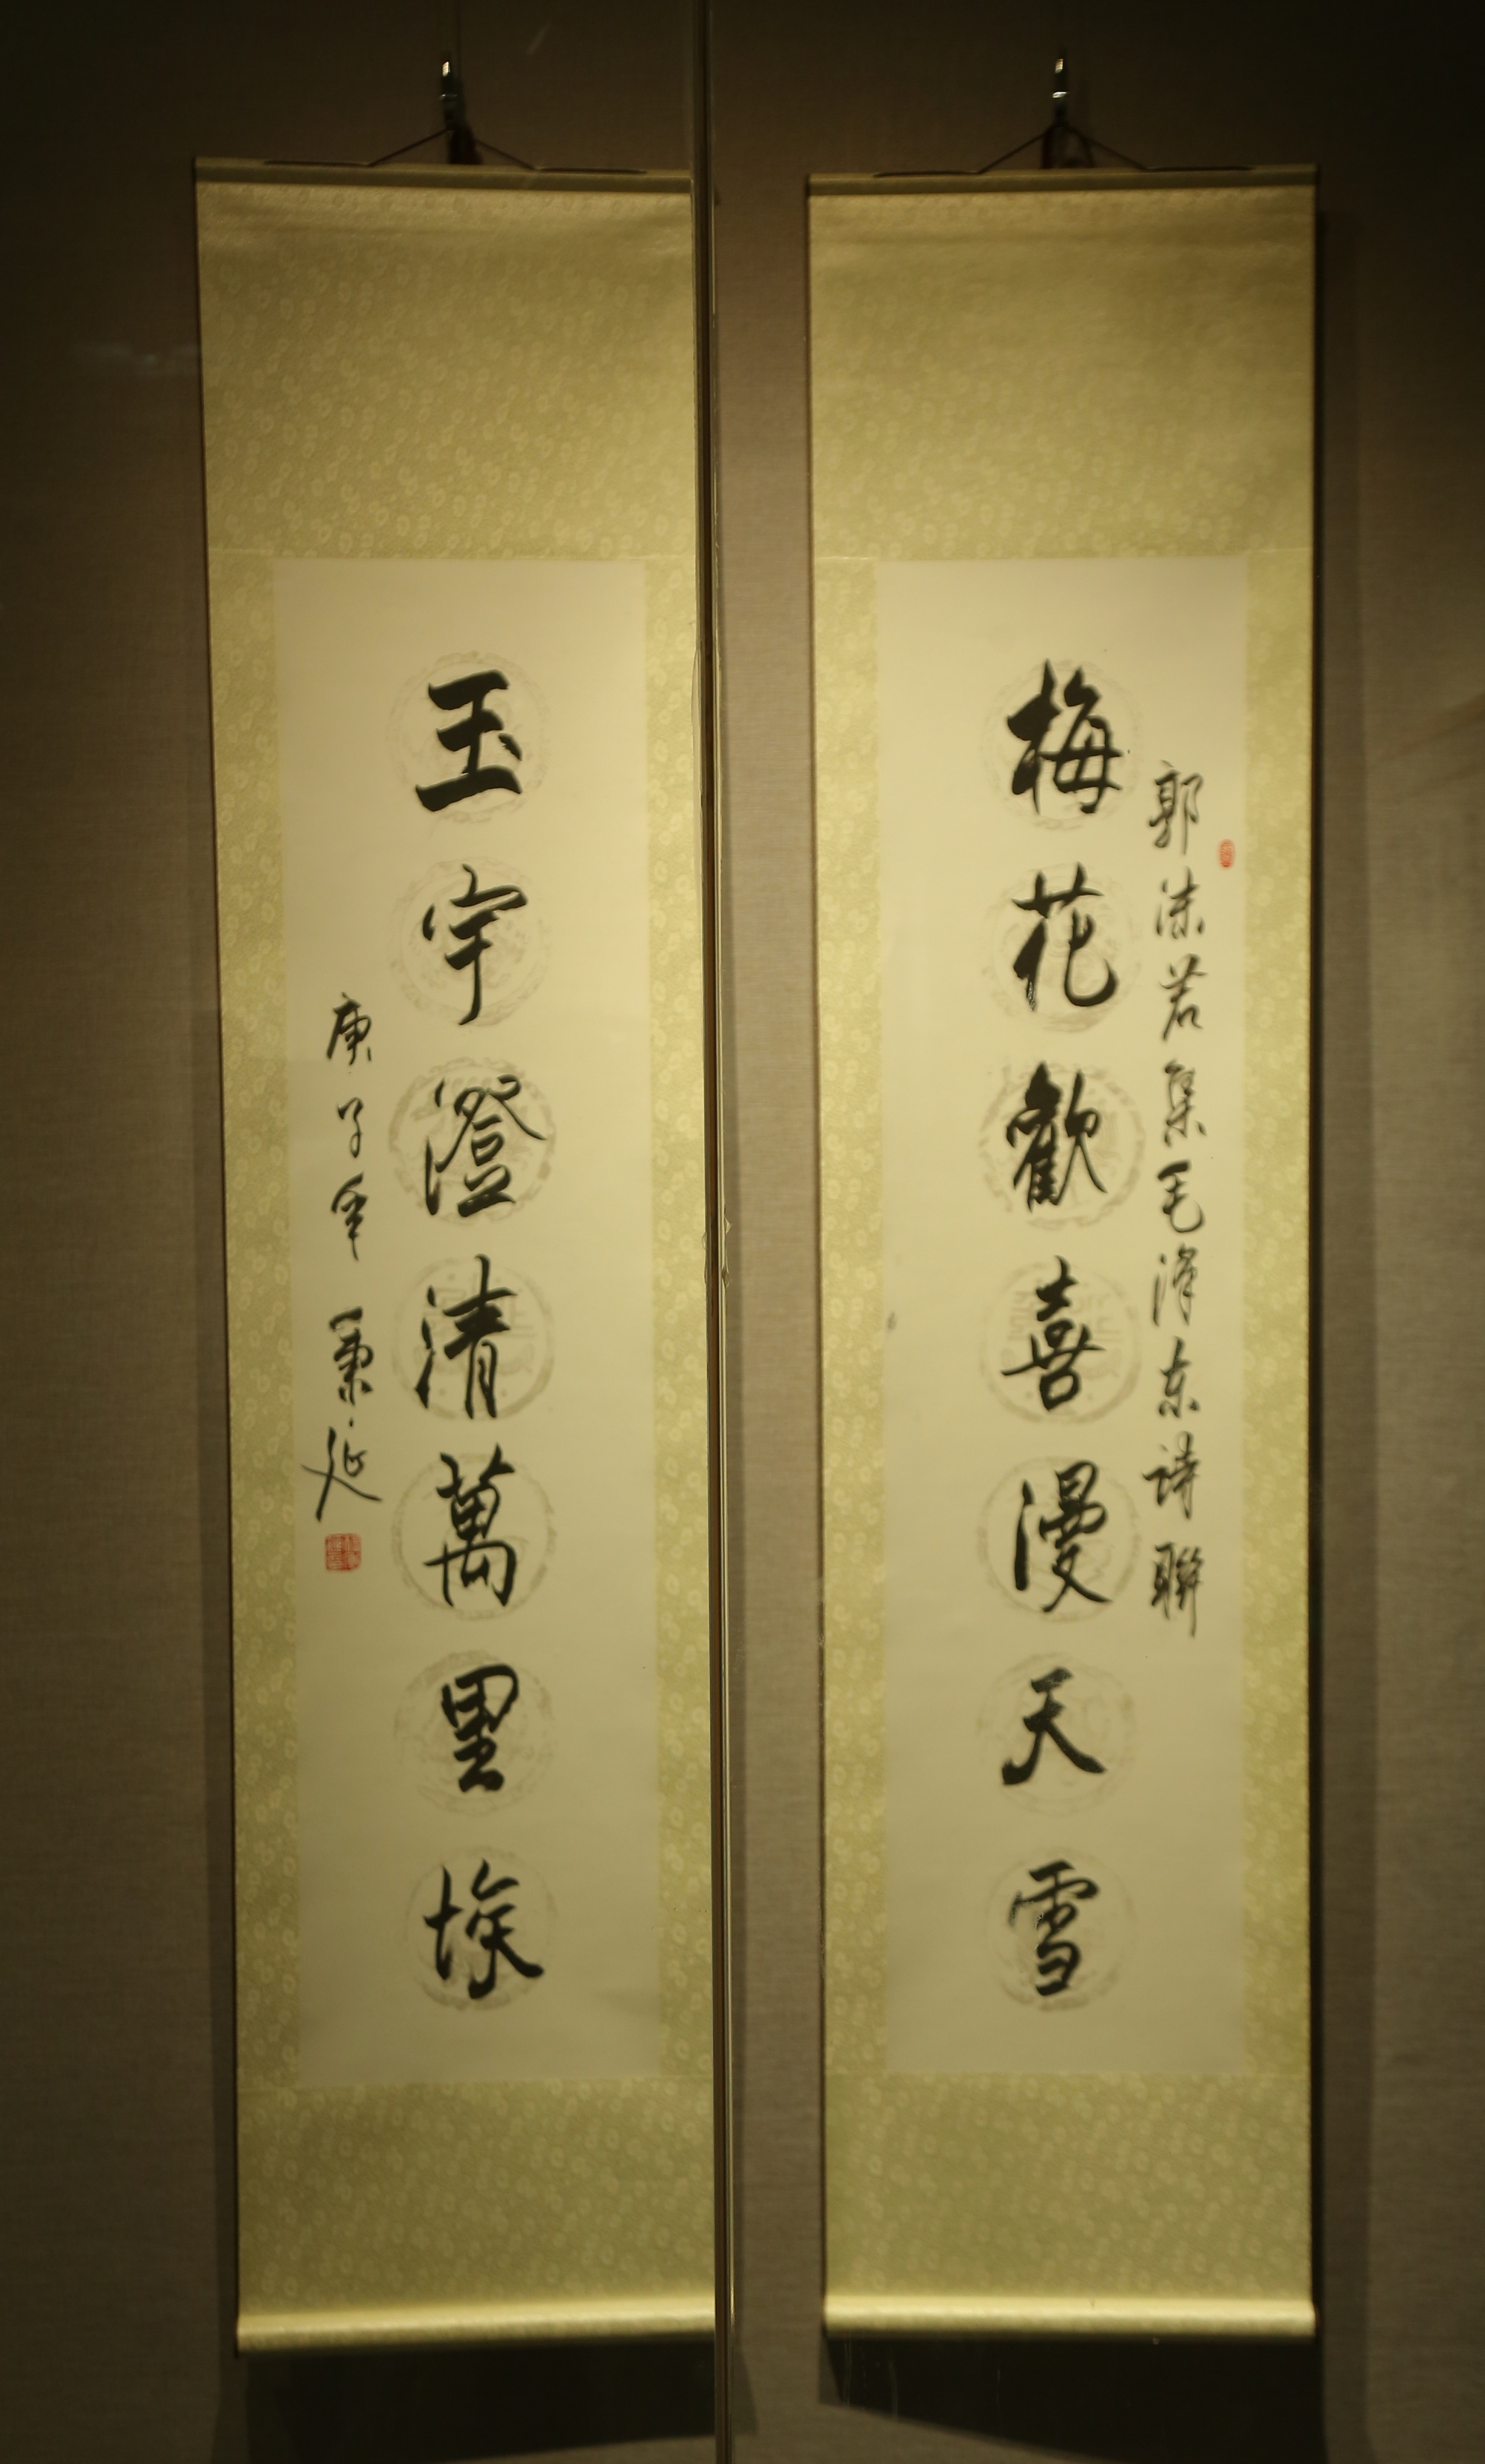 郭沫若集毛泽东诗联
梅花歡喜漫天雪
玉宇澄清萬里埃
庚子年 秉延